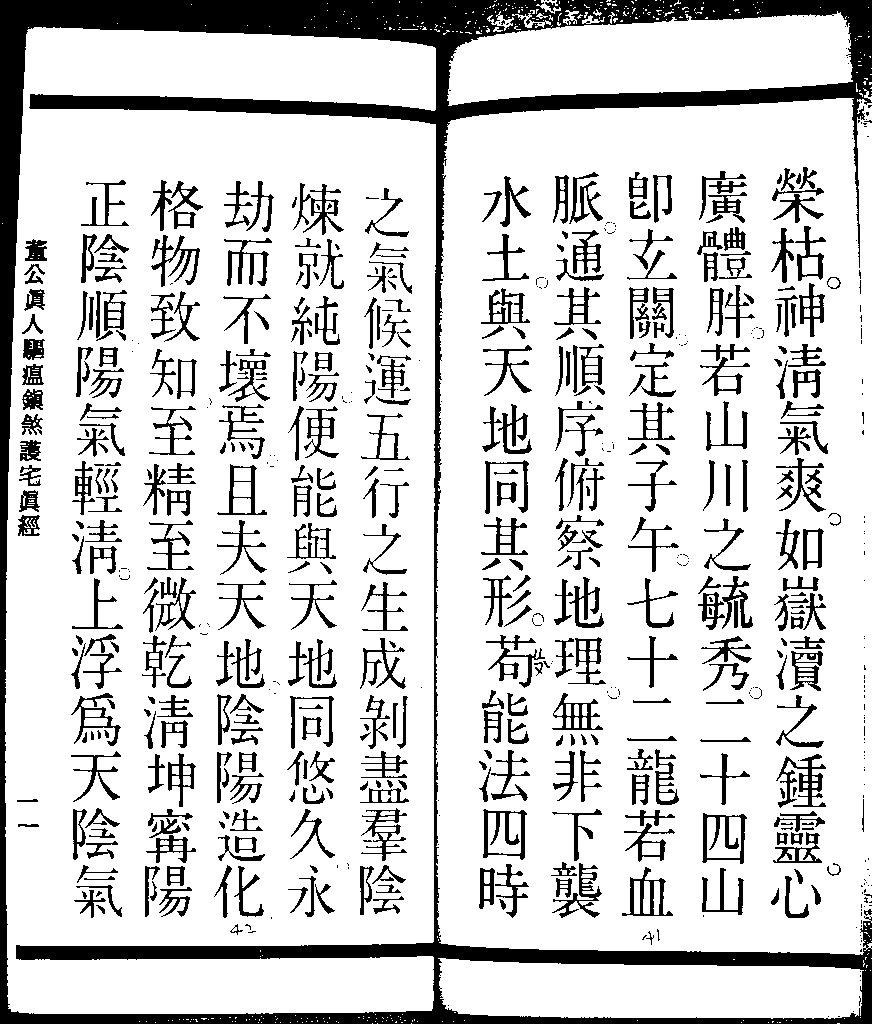 榮枯。神淸氣爽。如嶽瀆之鍾靈。心
廣體胖。若山川之毓秀。二十四山
卽玄關。定其子午。七十二龍若血
脈。通其順序。俯察地理。無非下襲
水土。與天地同其形。苟能法四時
41
之氣候運五行之生成剝盡羣陰
煉就純陽。便能與天地同悠久永
劫而不壞焉。且夫天地陰陽造化
格物致知至精至微。乾淸坤甯陽
正陰順陽氣輕淸。上浮爲天陰氣
42
董公眞人驅瘟鎭煞護宅眞經
一一